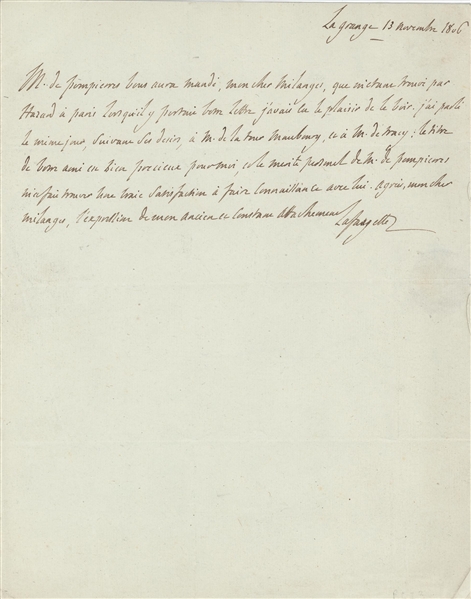 Lagrange 13 novembre 1806
M. de pompierres vous aura mandé, mon cher mélanges, que m'étant trouvé par
hazard à paris lorsqu'il y portait votre lettre j'avais eu le plaisir de le voir. j'ai parlé
le même jour, suivant ses desirs, à M. de la tour maubourg, et à M. de tracy; le titre
de votre ami est bien precieux pour moi, et le merite personel de M. de pompierres
m'a fait trouver une vraie satisfaction à faire connaissance avec lui. agréés, mon cher
mélanges, l'expression de mon ancien et constant attachement
Lafayette